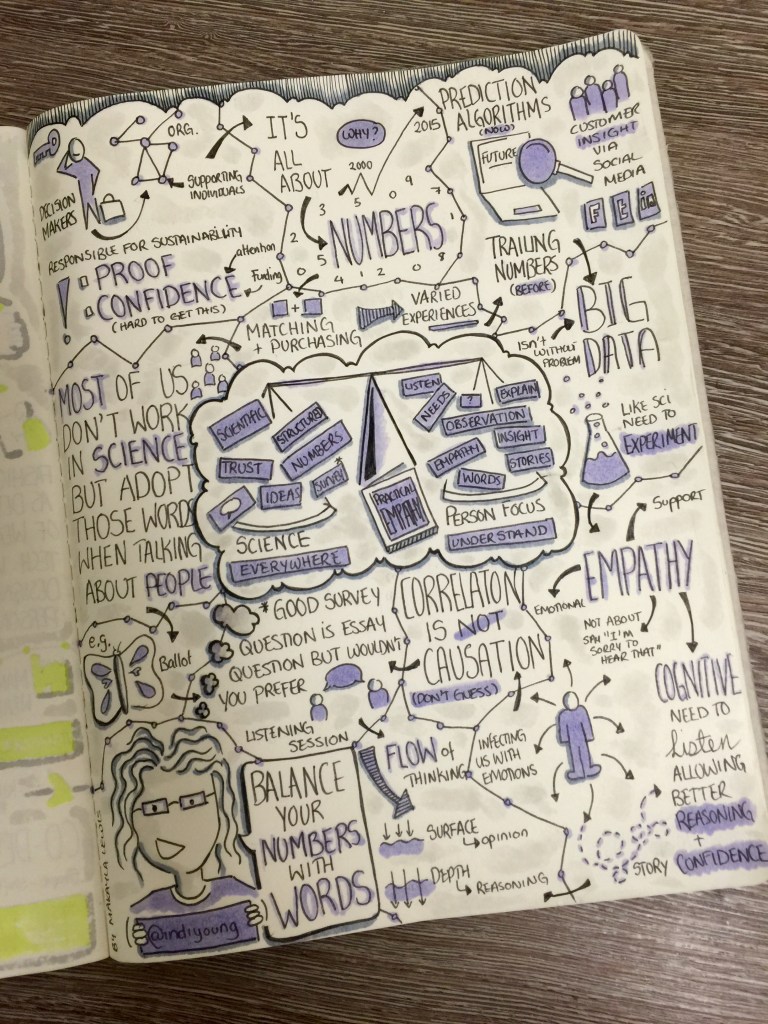 ORG.
SUPPORTING
INDIVIDUALS
DECISION
MAKERS
RESPONSIBLE FOR SUSTAINABILITY
! PROOF
CONFIDENCE
(HARD TO GET THIS)
attention
Funding
IT'S
ALL
ABOUT
NUMBERS
WHY?
2000
2015
3 5 0 9 7
2 1
5 8
0 5 4 1 2 0
PREDICTION
ALGORITHMS
(NOW)
FUTURE
CUSTOMER
INSIGHT
VIA
SOCIAL
MEDIA
F t in
TRAILING
NUMBERS
(BEFORE)
BIG
DATA
ISN'T
WITHOUT
PROBLEM
MATCHING
+ PURCHASING
+
VARIED
EXPERIENCES
LIKE SCI
NEED TO
EXPERIMENT
MOST OF US
DON'T WORK
IN SCIENCE
BUT ADOPT
THOSE WORD
WHEN TALKING
ABOUT PEOPLE
SCIENTIFIC
STRUCTURED
NUMBERS
TRUST
IDEAS
SURVEY*
SCIENCE
EVERYWHERE
PRACTICAL
EMPATHY
LISTEN
NEEDS
?
EXPLAIN
OBSERVATION
INSIGHT
EMPATHY
STORIES
WORDS
PERSON FOCUS
UNDERSTAND
e.g.
Ballot
* GOOD SURVEY
QUESTION IS ESSAY
QUESTION BUT WOULDN'T
YOU PREFER
LISTENING
SESSION
CORRELATON
IS NOT
CAUSATION
(DON'T GUESS)
SUPPORT
EMPATHY
EMOTIONAL
NOT ABOUT
SAY "I'M
SORRY TO
HEAR THAT"
INFECTING
US WITH
EMOTIONS
COGNITIVE
NEED TO
listen
ALLOWING
BETTER
REASONING
+
CONFIDENCE
STORY
FLOW of
THINKING
SURFACE
opinion
DEPTH
REASONING
BALANCE
YOUR
NUMBERS
WITH
WORDS
@indiyoung
BY MAKAYLA LEWIS